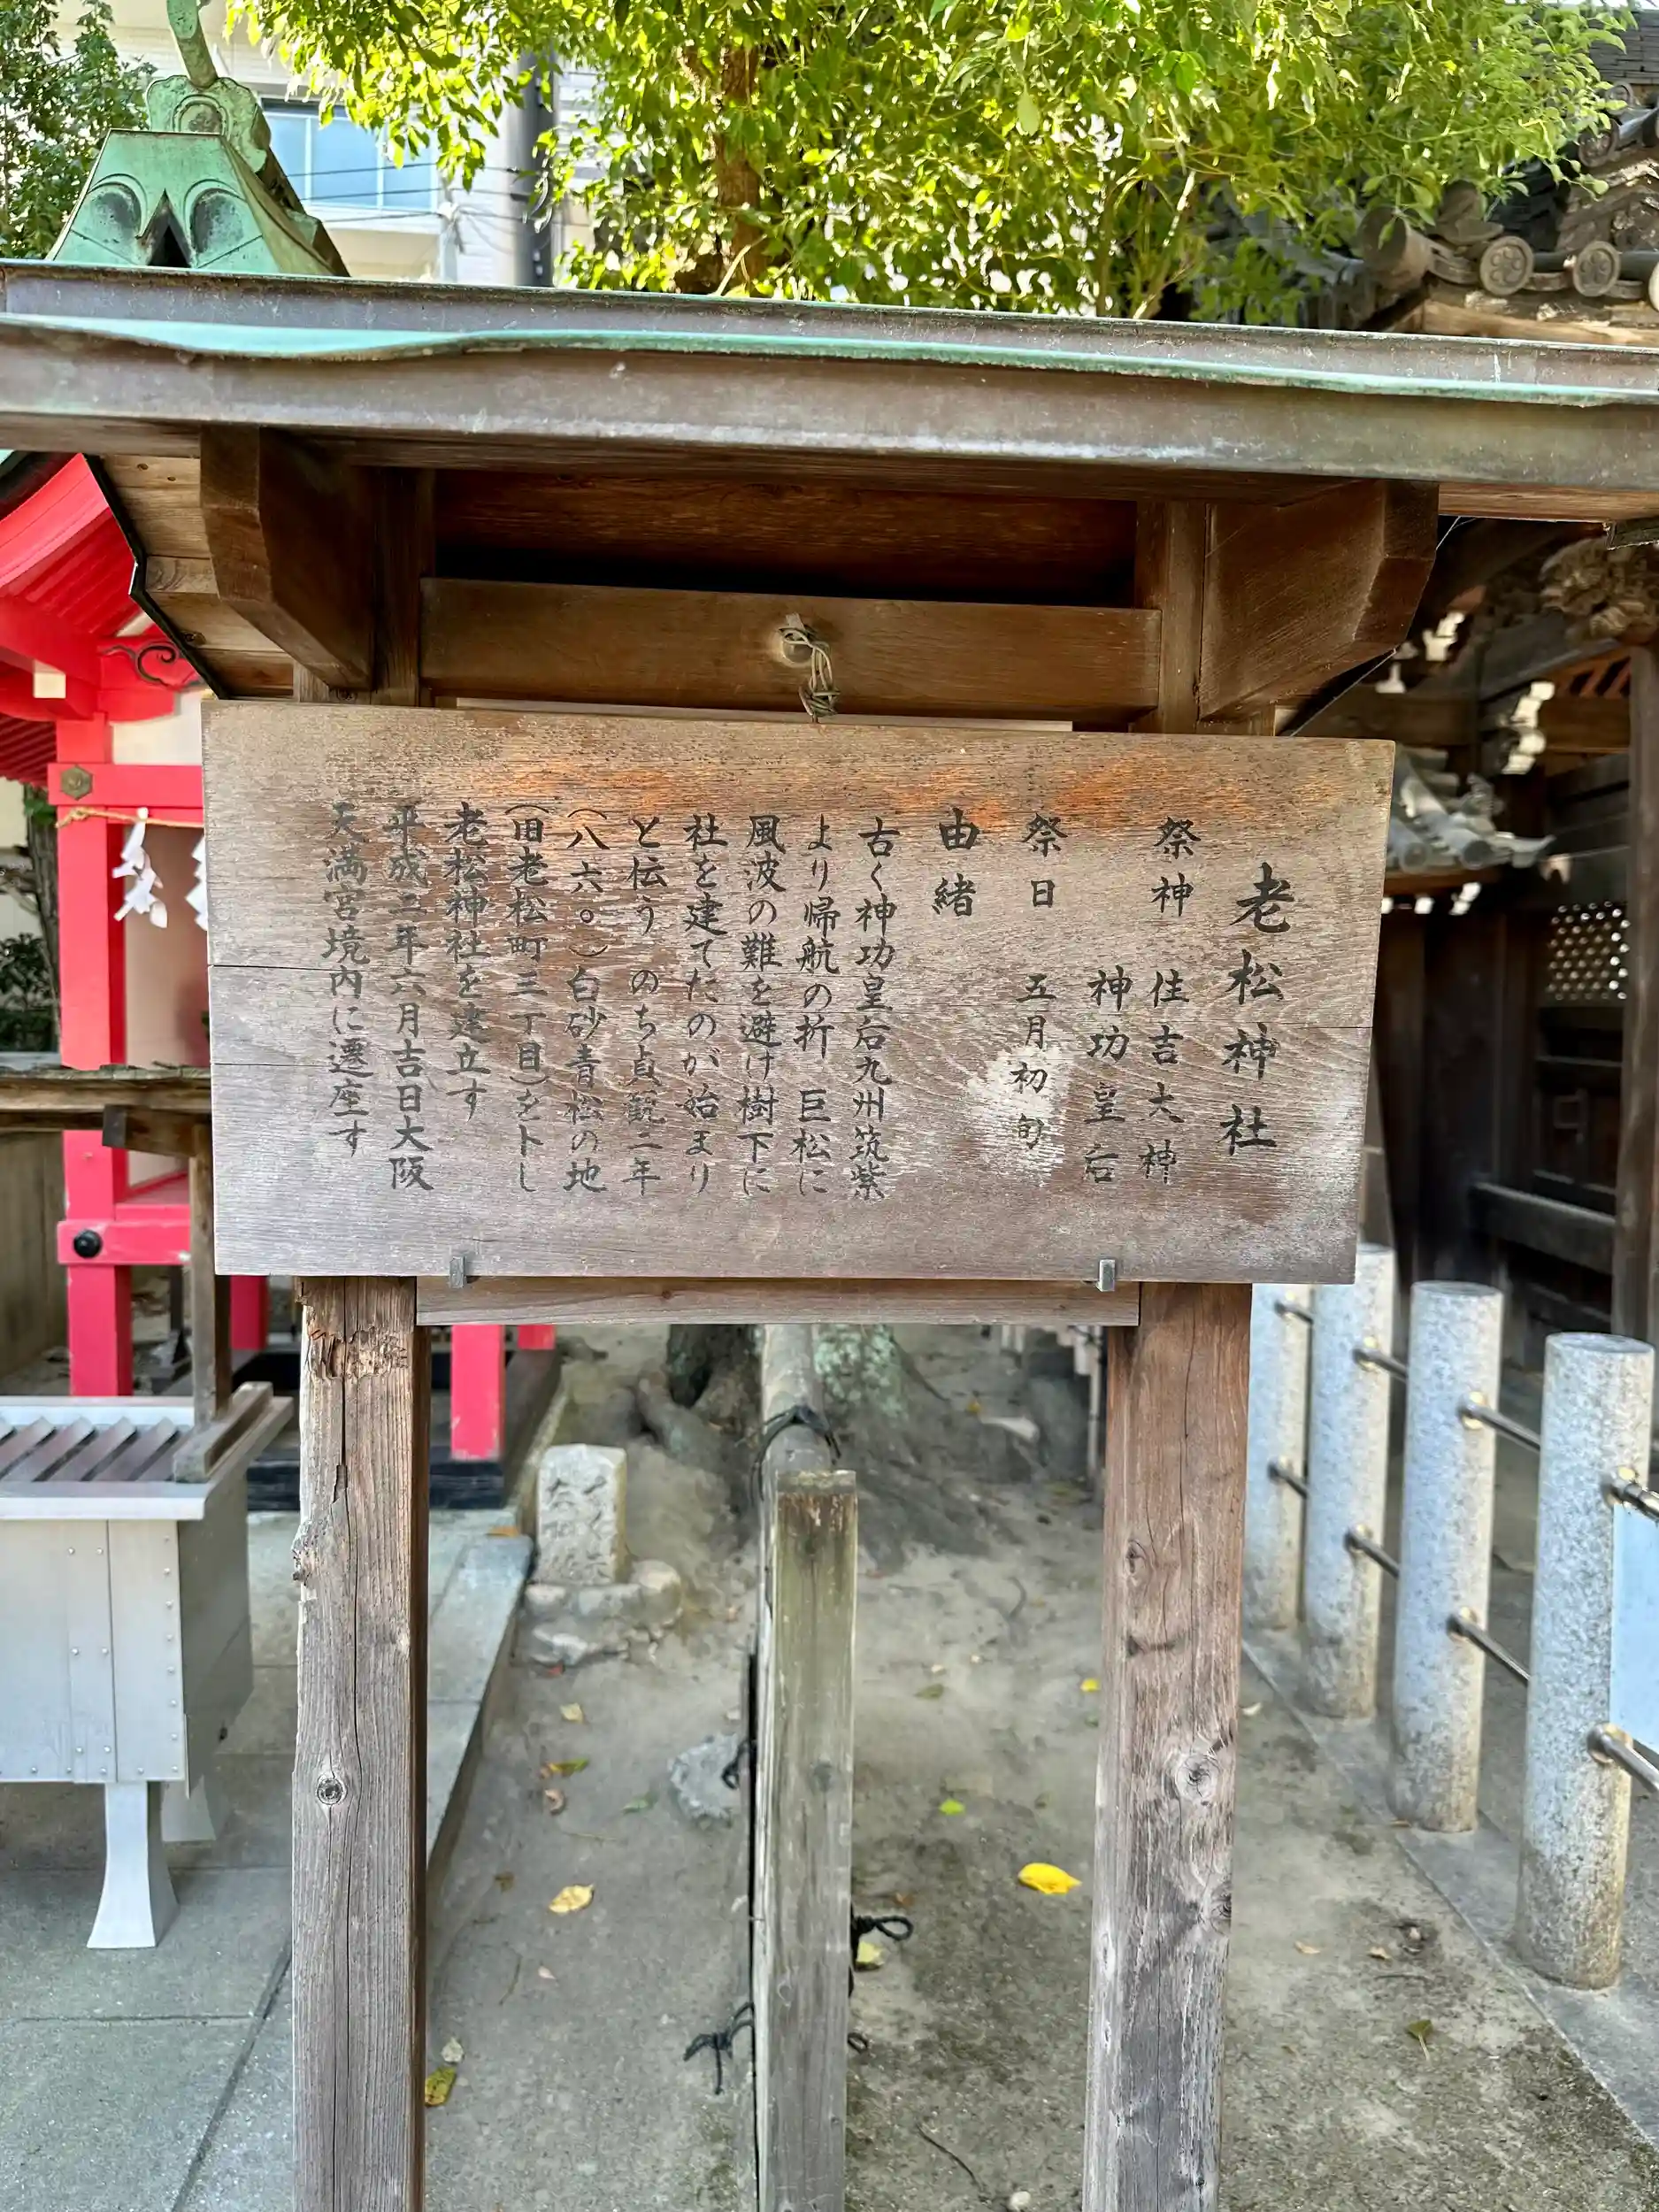 老松神社
祭神 住吉大神
神功皇后
祭日 五月初旬
由緒
古く神功皇后九州筑紫
より帰航の折 巨松に
風波の難を避け樹下に
社を建てたのが始まり
と伝う のち貞観二年
(八六〇)白砂青松の地
(旧老松町三丁目)を卜し
老松神社を建立す
平成二年六月吉日大阪
天満宮境内に遷座す